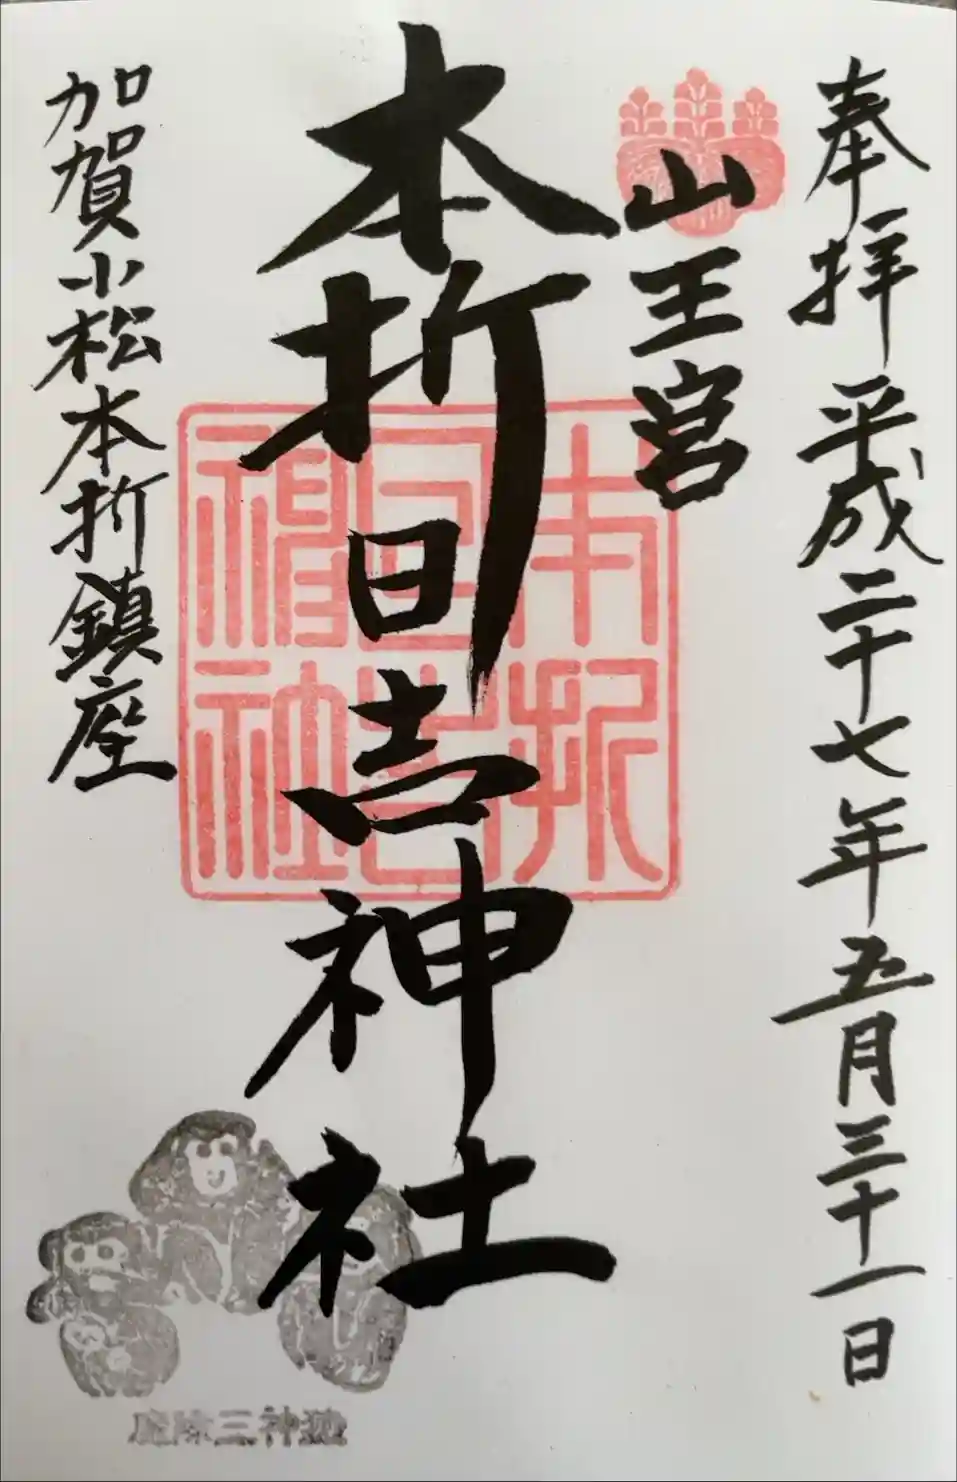 奉拝 平成二十七年五月三十一日
山王宮
本折日吉神社
加賀小松本折鎮座
本折
日吉
神社
魔除三神猿